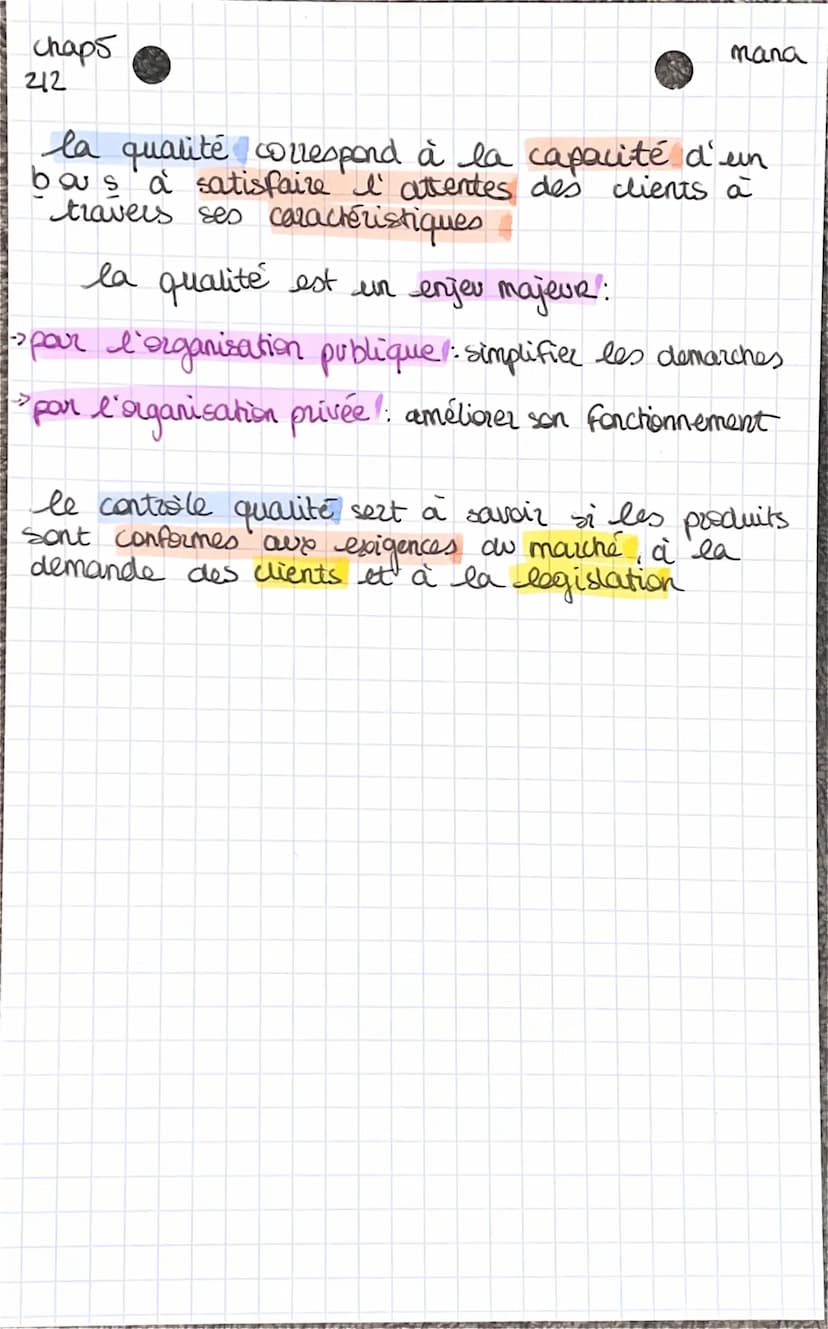 chap5
mana
2/2
la qualité correspond à la capacité d'un
b ou s à satisfaire l'attentes des clients à
travers ses caractéristiques
la qualité est un enjeu majeur :
-> pour l'organisation publique : simplifier les demarches
-> pour l'organisation privée : améliorer son fonctionnement
le contrôle qualité sert à savoir si les produits
sont conformes aux exigences du marché, à la
demande des clients et à la legislation